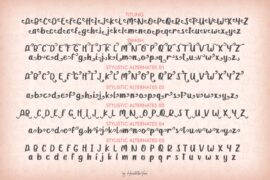 TITLING
A B C D E F G H I J K L M N O P Q R S T U V W X Y Z
a b c d e f g h i j k l m n o p q r s t u v w x y z
SWASH
A B C D E F G H I J K L M N O P Q R S T U V W X Y Z
a b c d e f g h i j k l m n o p q r s t u v w x y z
STYLISTIC ALTERNATES 01
A B C D E F G H I J K L M N O P Q R S T U V W X Y Z
a b c d e f g h i j k l m n o p q r s t u v w x y z
STYLISTIC ALTERNATES 02
A B C D E F G H I J K L M N O P Q R S T U V W X Y Z
a b c d e f g h i j k l m n o p q r s t u v w x y z
STYLISTIC ALTERNATES 03
A B C D E F G H I J K L M N O P Q R S T U V W X Y Z
a b c d e f g h i j k l m n o p q r s t u v w x y z
STYLISTIC ALTERNATES 05
A B C D E F G H I J K L M N O P Q R S T U V W X Y Z
a b c d e f g h i j k l m n o p q r s t u v w x y z
by